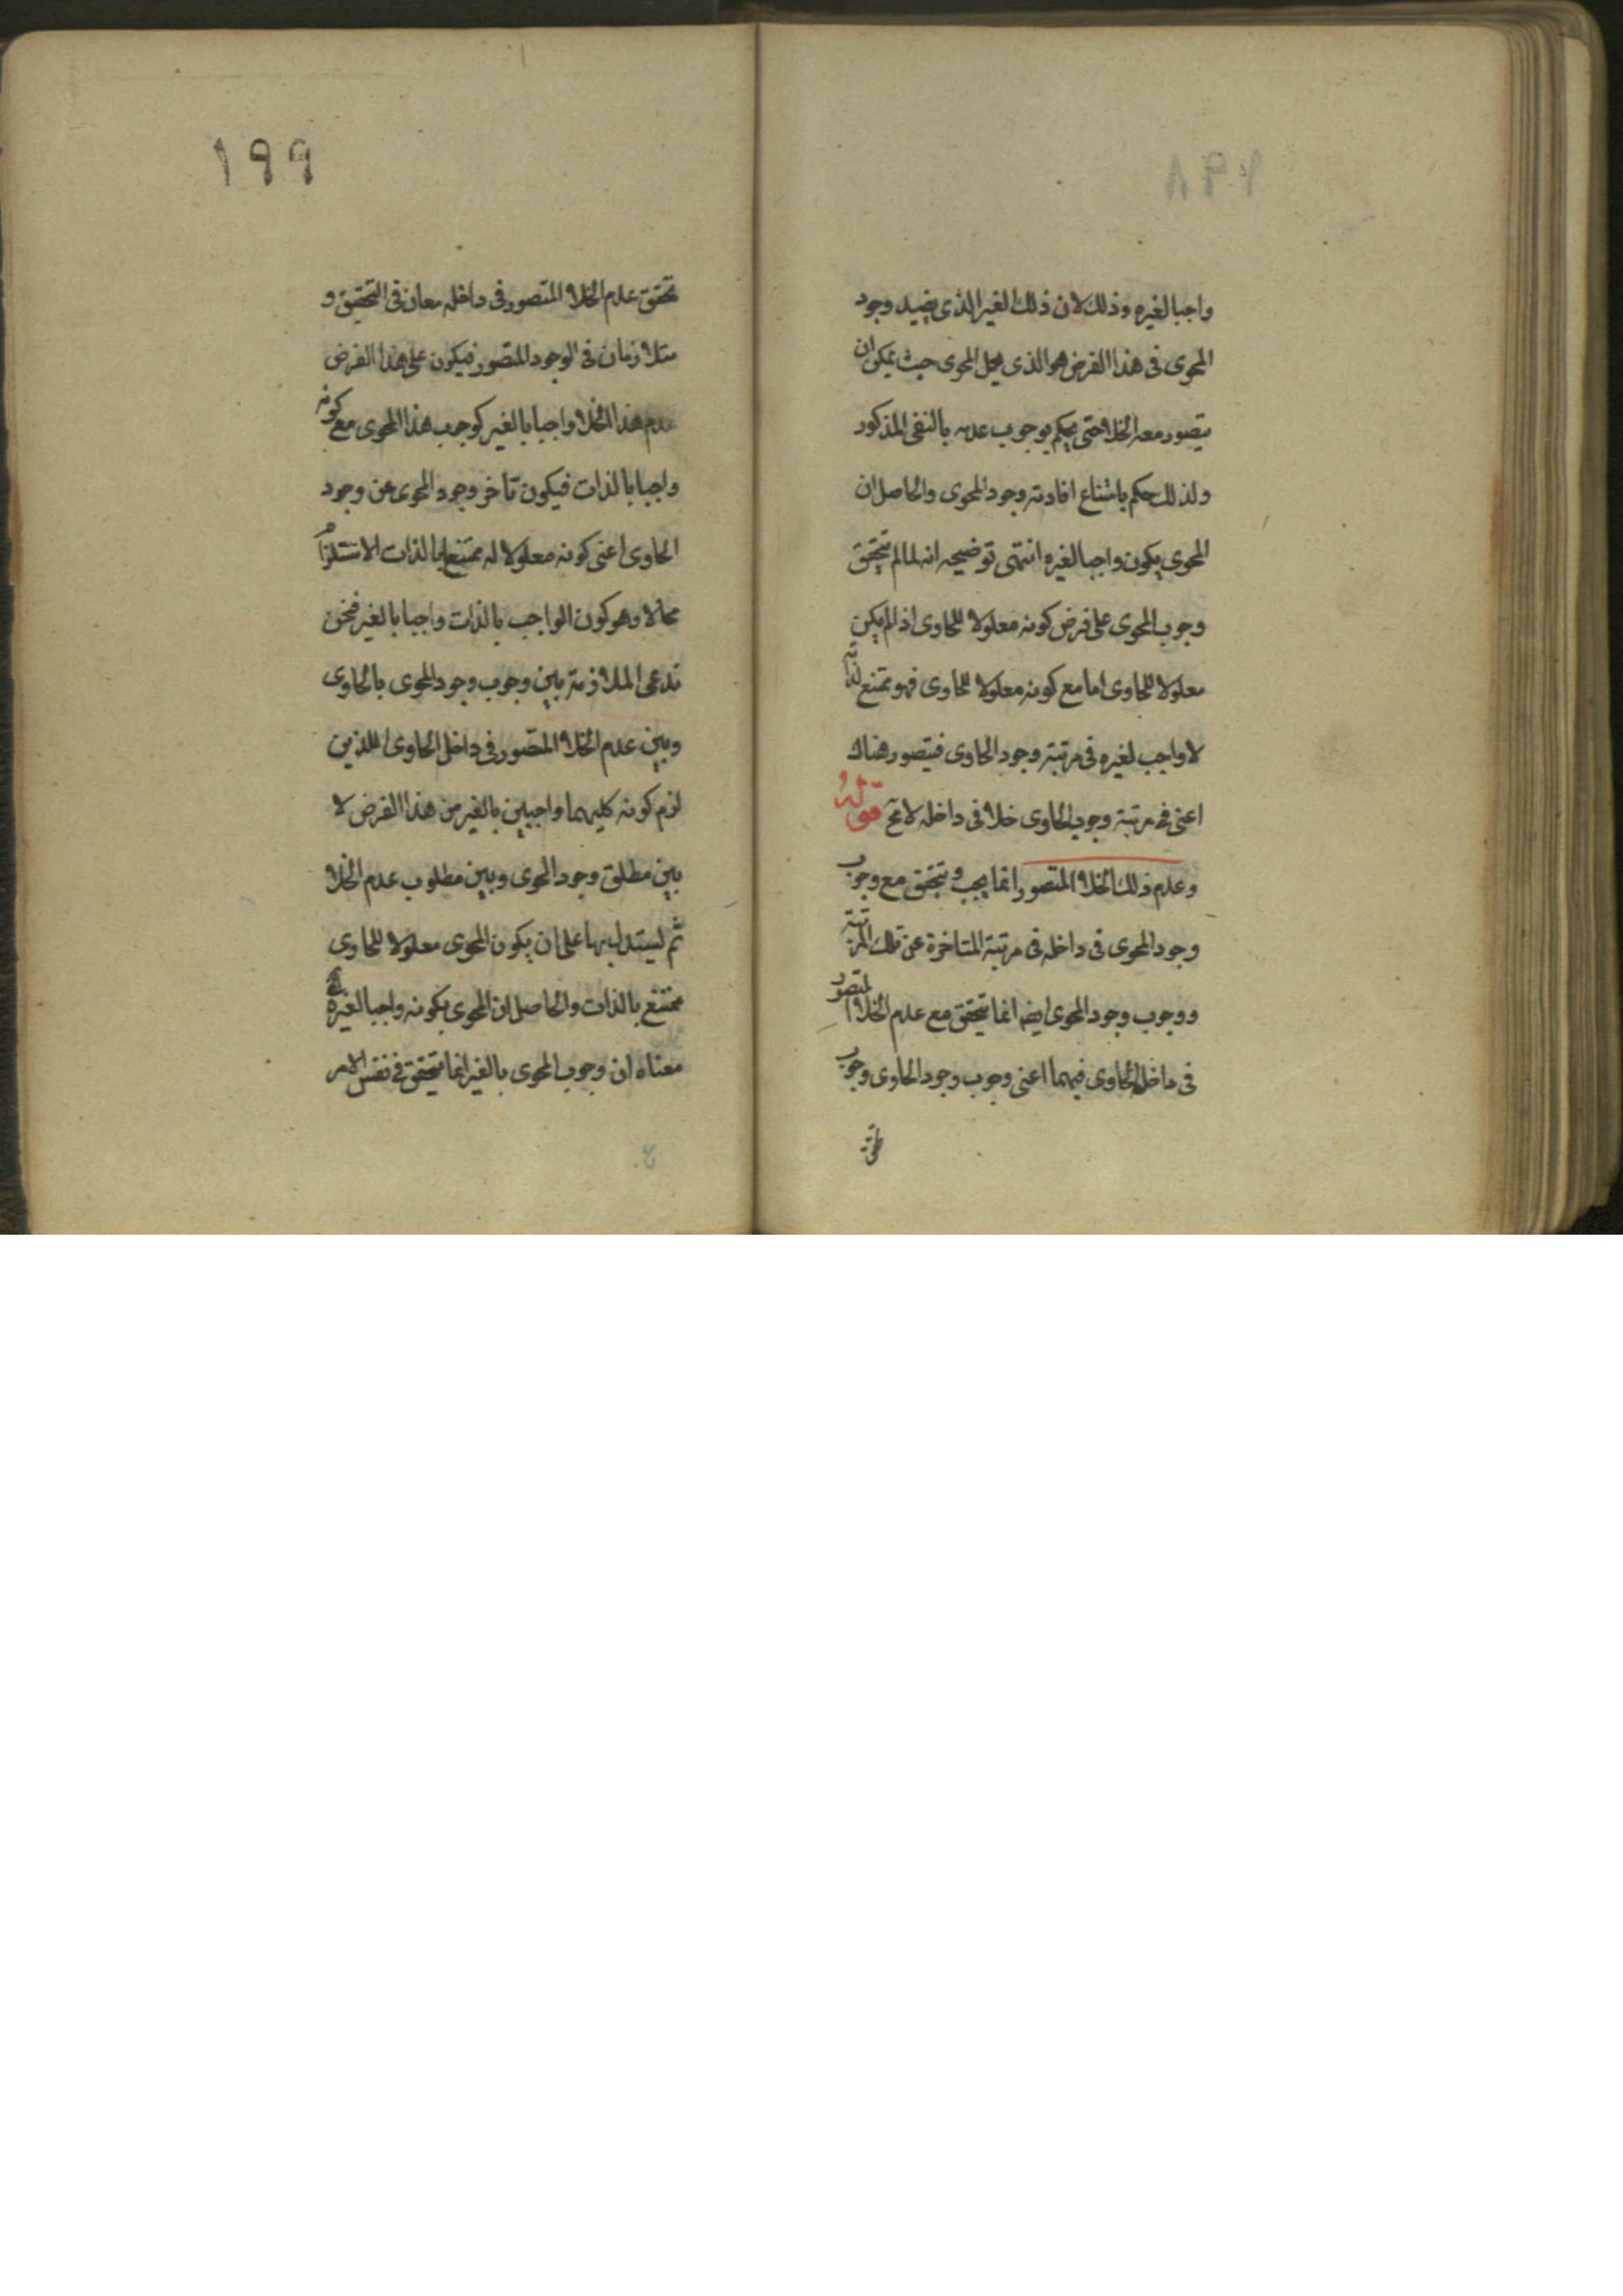 ١٩٨
واجبا لغيره وذلك لان ذلك الغير الذى يفيد وجود
المحوى فى هذا الفرض هو الذى يجعل المحوى حيث يمكن ان
يتصور معه الخلاء حتى يحكم بوجوب عدمه بالنفى المذكور
ولذلك حكم بامتناع افادته وجود المحوى والحاصل ان
المحوى يكون واجبا لغيره انتهى توضيحه انه لما لم يتحقق
وجوب المحوى على فرض كونه معلولا للحاوى اذ لم يكن
معلولا للحاوى اما مع كونه معلولا للحاوى فهو ممتنع لذاته
لا واجب لغيره فى مرتبة وجود الحاوى فيتصور هناك
اعنى فى مرتبة وجوب الحاوى خلاء فى داخله لا مح قوله
وعدم ذلك الخلاء المتصور انما يجب ويتحقق مع وجوب
وجود المحوى فى داخله فى مرتبة المتاخرة عن تلك المرتبة
ووجوب وجود المحوى ايضا انما يتحقق مع عدم الخلاء المتصور
فى داخل الحاوى فهما اعنى وجوب وجود الحاوى وجوب
تحقق
١٩٩
تحقق عدم الخلاء المتصور فى داخله معان فى التحقيق و
متلازمان فى الوجود المتصور فيكون على هذا الفرض
عدم هذا الخلاء واجبا بالغير كوجوب هذا المحوى مع كونه
واجبا بالذات فيكون تاخر وجود المحوى عن وجود
الحاوى اعنى كونه معلولا له ممتنعا بالذات لاستلزامه
محالا وهو كون الواجب بالذات واجبا بالغير فنحن
ندعى الملازمة بين وجوب وجود المحوى بالحاوى
وبين عدم الخلاء المتصور فى داخل الحاوى اللذين
لزم كونه كليهما واجبين بالغير من هذا الفرض لا
بين مطلق وجود المحوى وبين مطلوب عدم الخلاء
ثم ليستدل بها على ان يكون المحوى معلولا للحاوى
ممتنع بالذات والحاصل ان المحوى بكونه واجبا لغيره
معناه ان وجوب المحوى بالغير انما يتحقق فى نفس الامر